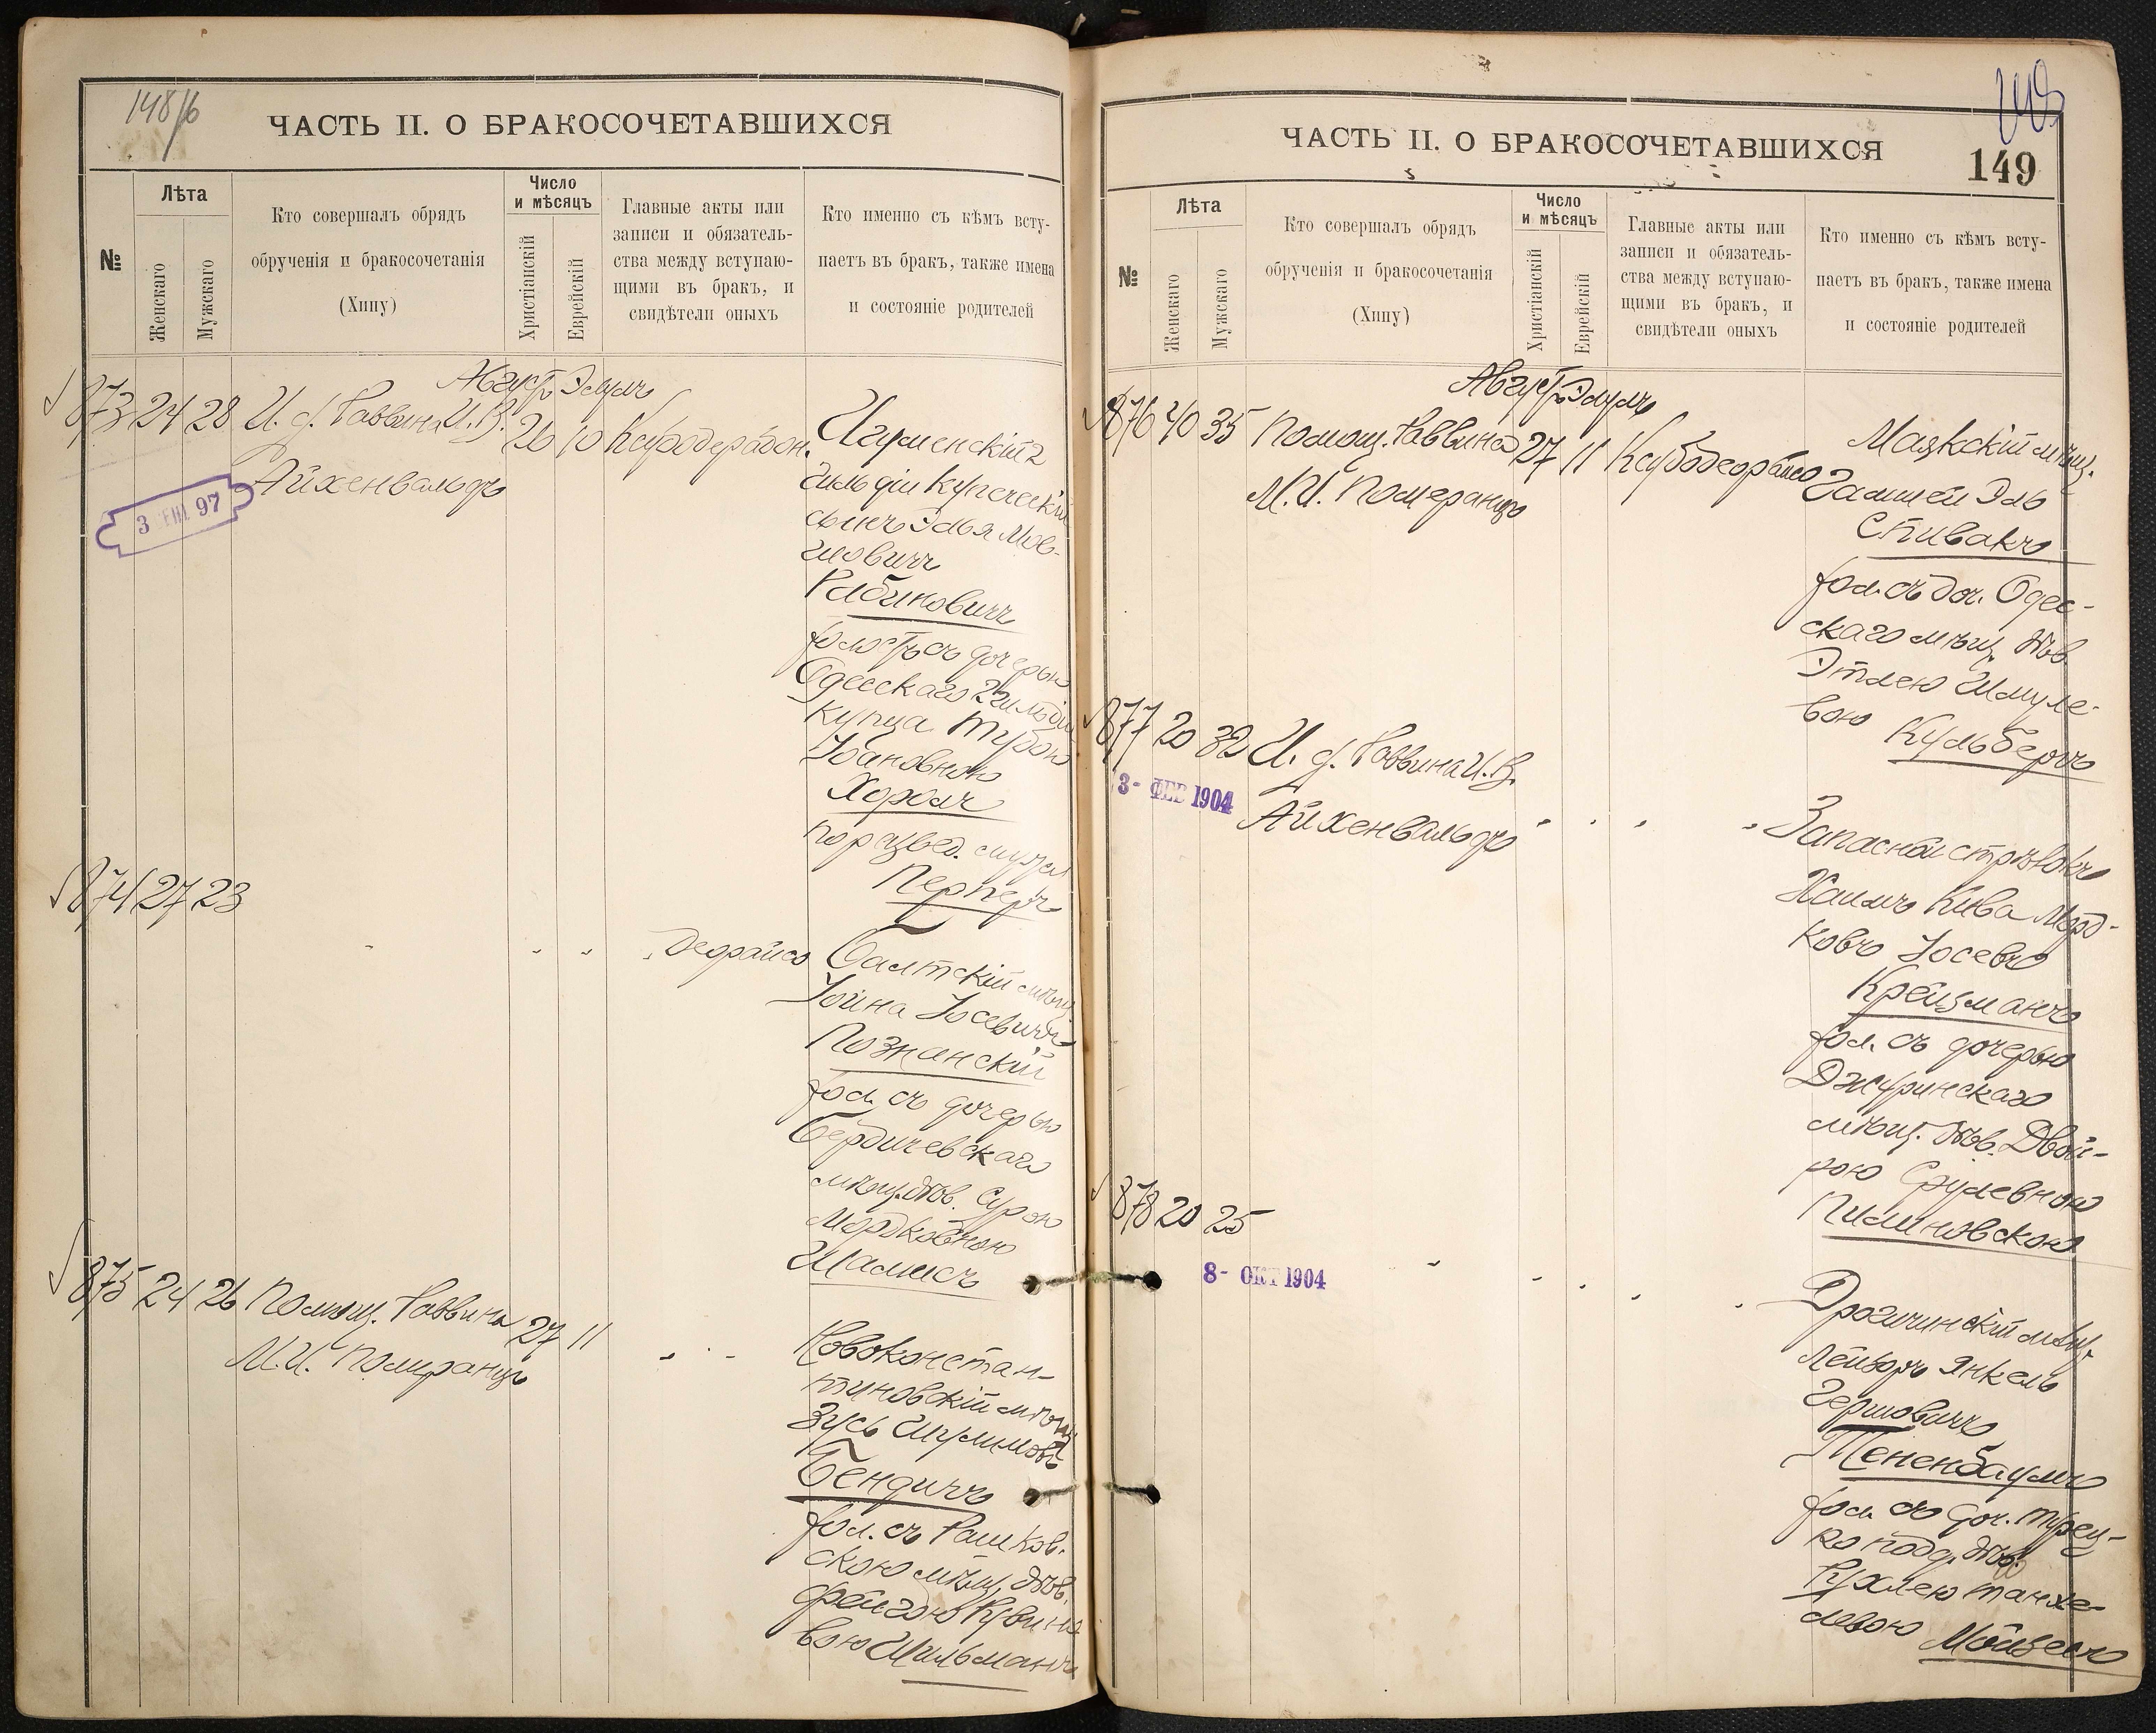 148/б
ЧАСТЬ II. О БРАКОСОЧЕТАВШИХСЯ
№
Лѣта
Женскаго
Мужскаго
Кто совершалъ обрядъ
обрученія и бракосочетанія
(Хипу)
Число
и мѣсяцъ
Христіанскій
Еврейскій
Главные акты или
записи и обязатель-
ства между вступаю-
щими въ бракъ, и
свидѣтели оныхъ
Кто именно съ кѣмъ всту-
паетъ въ бракъ, также имена
и состояніе родителей
Августъ Элулъ
873 24 28 И. д. Раввина И. В. 26 10
Айхенвальдъ
3 СЕН 97
Игуменскій 2
гильдіи купеческій
сынъ Элья Мов-
шовичъ
Рабиновичъ
холостъ съ дочерью
Одесскаго 2 гильдіи
купца
Хоролъ
по развед. мужу
Перперъ
874 27 23
Балтскій мѣщ.
Іойна Іосевичъ
Познанскій
хол. съ дочерью
Бердичевскаго
мѣщ. дѣв. Сурою
Мордковною
875 24 26 Помощ. Раввина 27 11
М. И. Померанцъ
Новоконстан-
тиновскій мѣщ.
Зусь
Бендичъ
хол. съ Рашков-
скою мѣщ. дѣв.
Фейгою Рувино-
вою Шильманъ
ЧАСТЬ II. О БРАКОСОЧЕТАВШИХСЯ
149
№
Лѣта
Женскаго
Мужскаго
Кто совершалъ обрядъ
обрученія и бракосочетанія
(Хипу)
Число
и мѣсяцъ
Христіанскій
Еврейскій
Главные акты или
записи и обязатель-
ства между вступаю-
щими въ бракъ, и
свидѣтели оныхъ
Кто именно съ кѣмъ всту-
паетъ въ бракъ, также имена
и состояніе родителей
Августъ Элулъ
876 40 35 Помощ. Раввина 27 11
М. И. Померанцъ
Маякскій мѣщ.
Гамшей Эль
Спивакъ
хол. съ доч. Одес-
скаго мѣщ. дѣв.
Этлею Шмуле-
вою Кульбергъ
877 20 32 И. д. Раввина И. В.
3- ФЕВ 1904
Айхенвальдъ
Запасной стрѣлокъ
Хаимъ Кива Морд-
ковъ Іосевъ
Крейцманъ
хол. съ дочерью
Джуринскаго
мѣщ. дѣв. Двой-
рою Срулевною
Пилиновскою
878 20 25
8- ОКТ 1904
Дрогичинскій мѣщ.
Лейзоръ Янкель
Гершовичъ
Тененбаумъ
хол. съ доч. турец-
ко подд. дѣв.
Рухлею Танхе-
левою